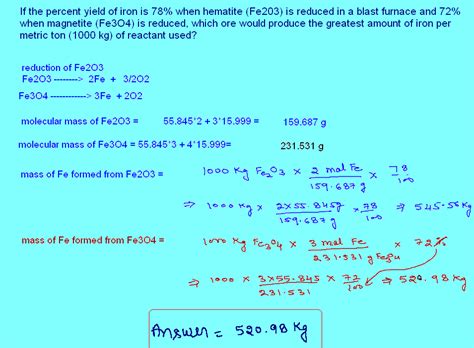 If the percent yield of iron is 78% when hematite (Fe203) is reduced in a blast furnace and 72%
when magnetite (Fe3O4) is reduced, which ore would produce the greatest amount of iron per
metric ton (1000 kg) of reactant used?
reduction of Fe2O3
Fe2O3 --------> 2Fe + 3/2O2
Fe3O4 ------------> 3Fe + 2O2
molecular mass of Fe2O3 = 55.845*2 + 3*15.999 = 159.687 g
molecular mass of Fe3O4 = 55.845*3 + 4*15.999= 231.531 g
mass of Fe formed from Fe2O3 = 1000 Kg Fe2O3 × 2 mol Fe / 159.687 g × 78 / 100
⇒ 1000 Kg × 2×55.845g / 159.687 g × 78 / 100 ⇒ 545.56 Kg
mass of Fe formed from Fe3O4 = 1000 Kg Fe3O4 × 3 mol Fe / 231.531 g Fe3O4 × 72%
⇒ 1000 × 3×55.845 / 231.531 × 72 / 100 ⇒ 520.98 Kg
Answer = 520.98 Kg